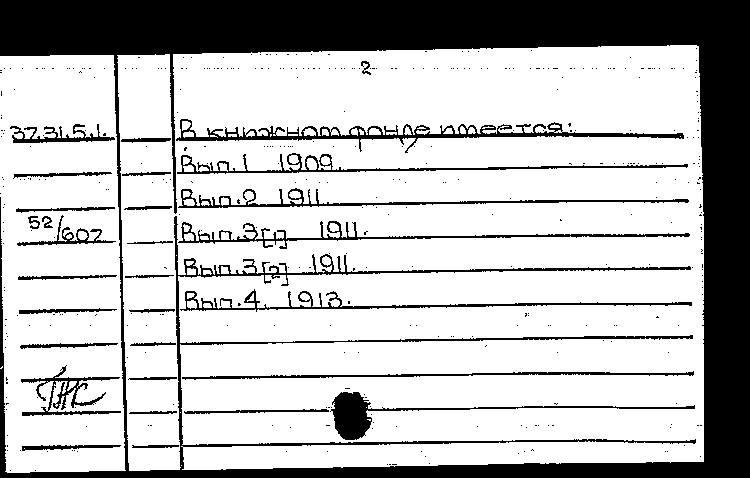 2
37.31.5.1. В книжном фонде имеется:
Вып.1 1909.
Вып.2 1911.
52/607 Вып.3[1] 1911.
Вып.3[2] 1911.
Вып.4. 1913.